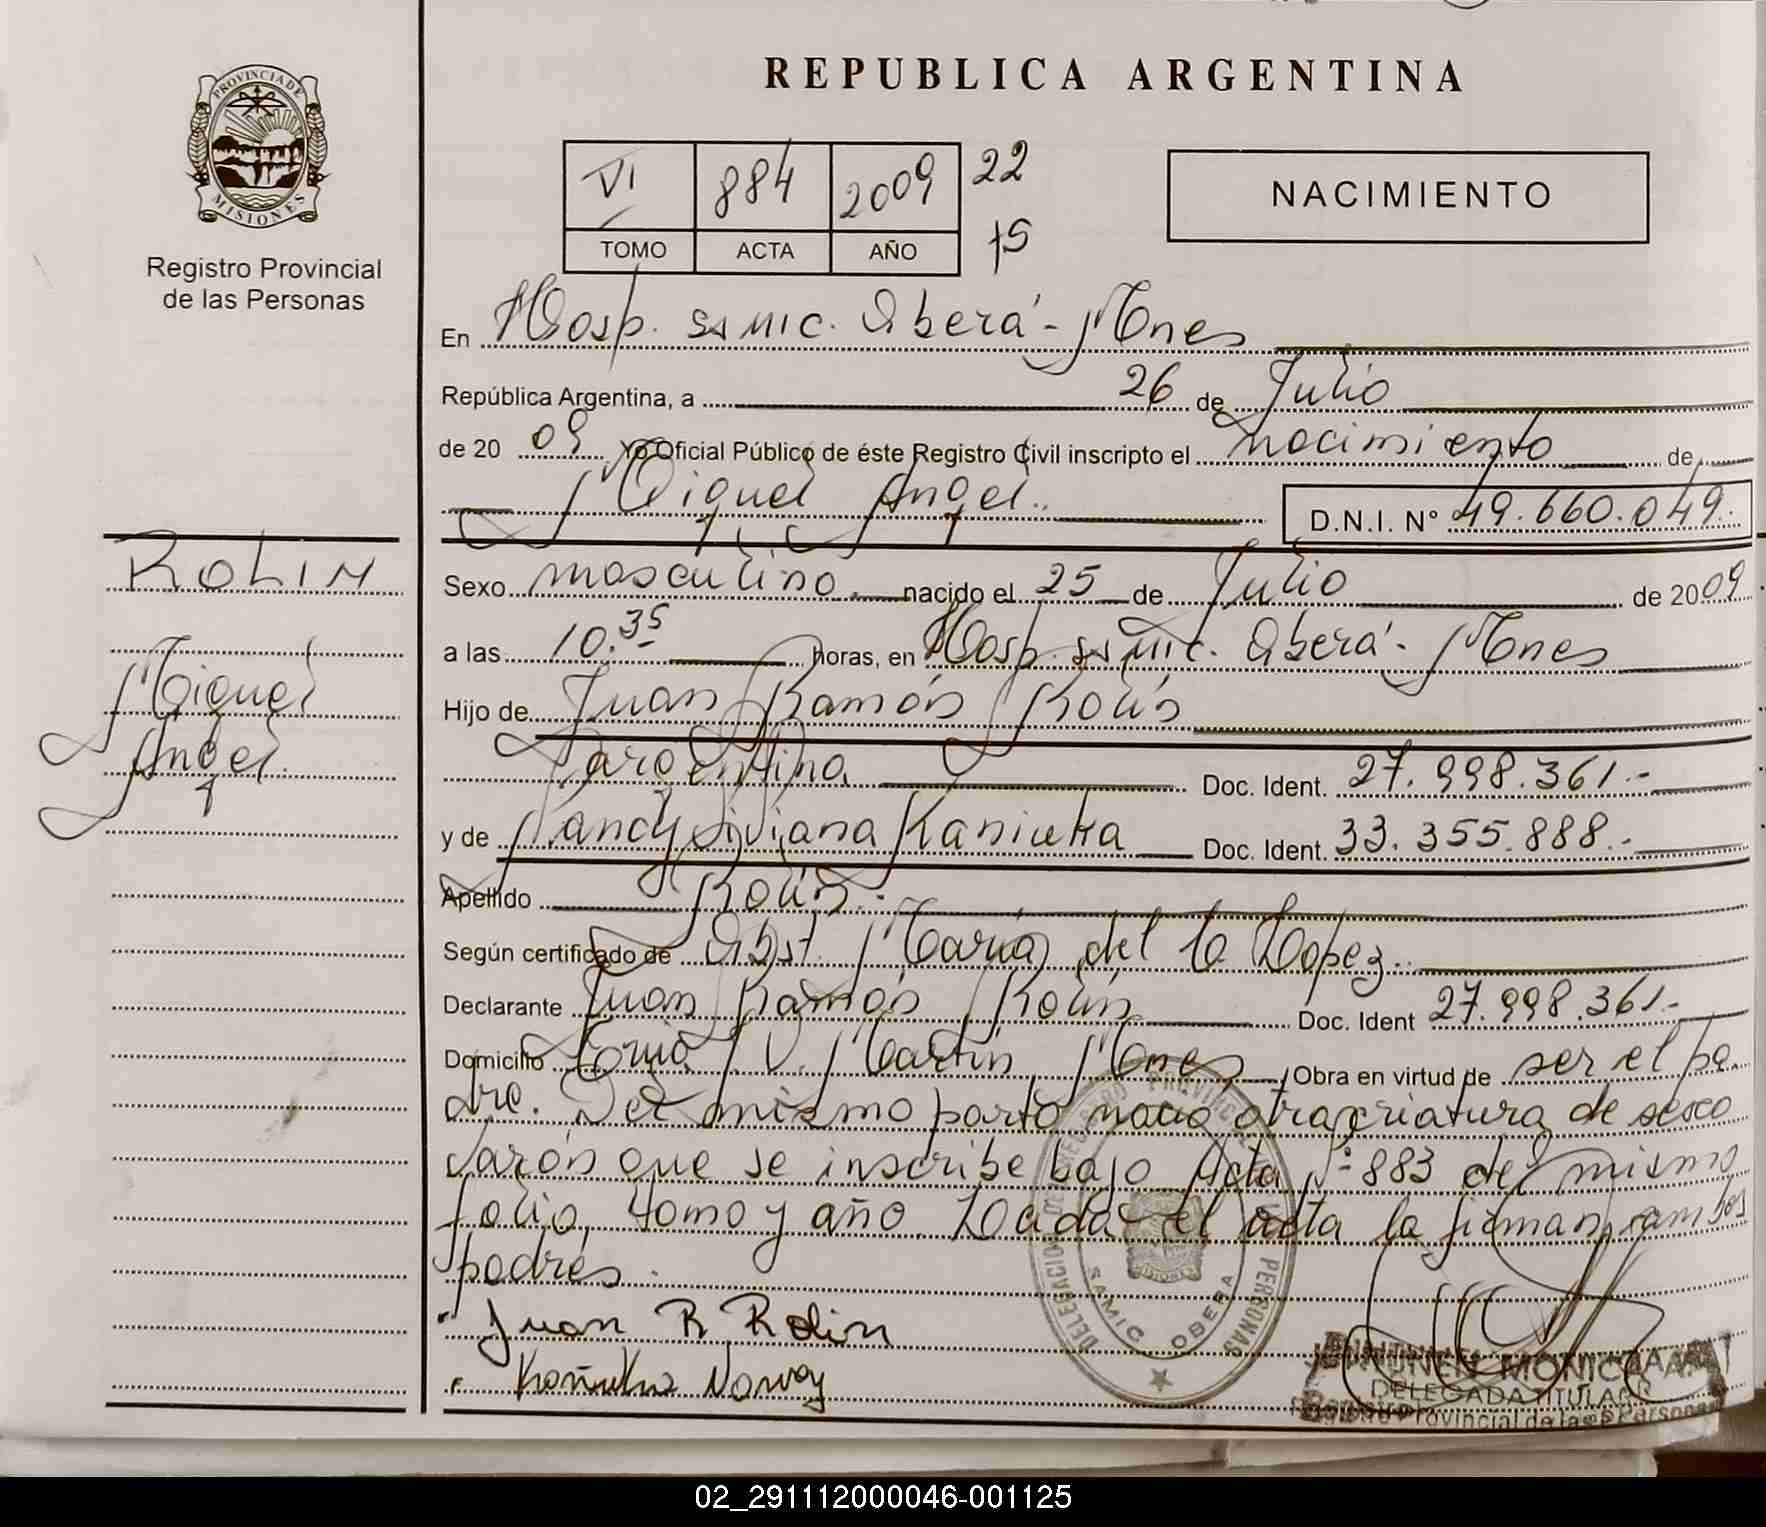 REPUBLICA ARGENTINA
PROVINCIA DE
MISIONES
Registro Provincial
de las Personas
VI 884 2009 22
TOMO ACTA AÑO 15
NACIMIENTO
En Hosp. ssmic. Oberá - Mnes
República Argentina, a 26 de Julio
de 20 09 Yo Oficial Público de éste Registro Civil inscripto el nacimiento de
Miguel Angel. D.N.I. N° 49.660.049.
ROLIN
Miguel
Angel
Sexo masculino nacido el 25 de Julio de 2009
a las 10.35 horas, en Hosp. ssmic. Oberá - Mnes
Hijo de Juan Ramón Rolin
argentina Doc. Ident. 27.998.361.-
y de Nancy Viviana Kaniuka Doc. Ident. 33.355.888.-
Apellido Rolin.-
Según certificado de Obst. María del C Lopez.
Declarante Juan Ramón Rolin Doc. Ident 27.998.361.-
Domicilio Martín, Mnes Obra en virtud de ser el pa
dre. Del mismo parto nació otra criatura de sexo
varón que se inscribe bajo Acta N° 883 del mismo
folio, tomo y año. Leída el acta la firman ambos
padres.
Juan R Rolin
Kañuka
SAMIC OBERA
MONICA
DELEGADA TITULAR
Provincial de las Personas
02_291112000046-001125